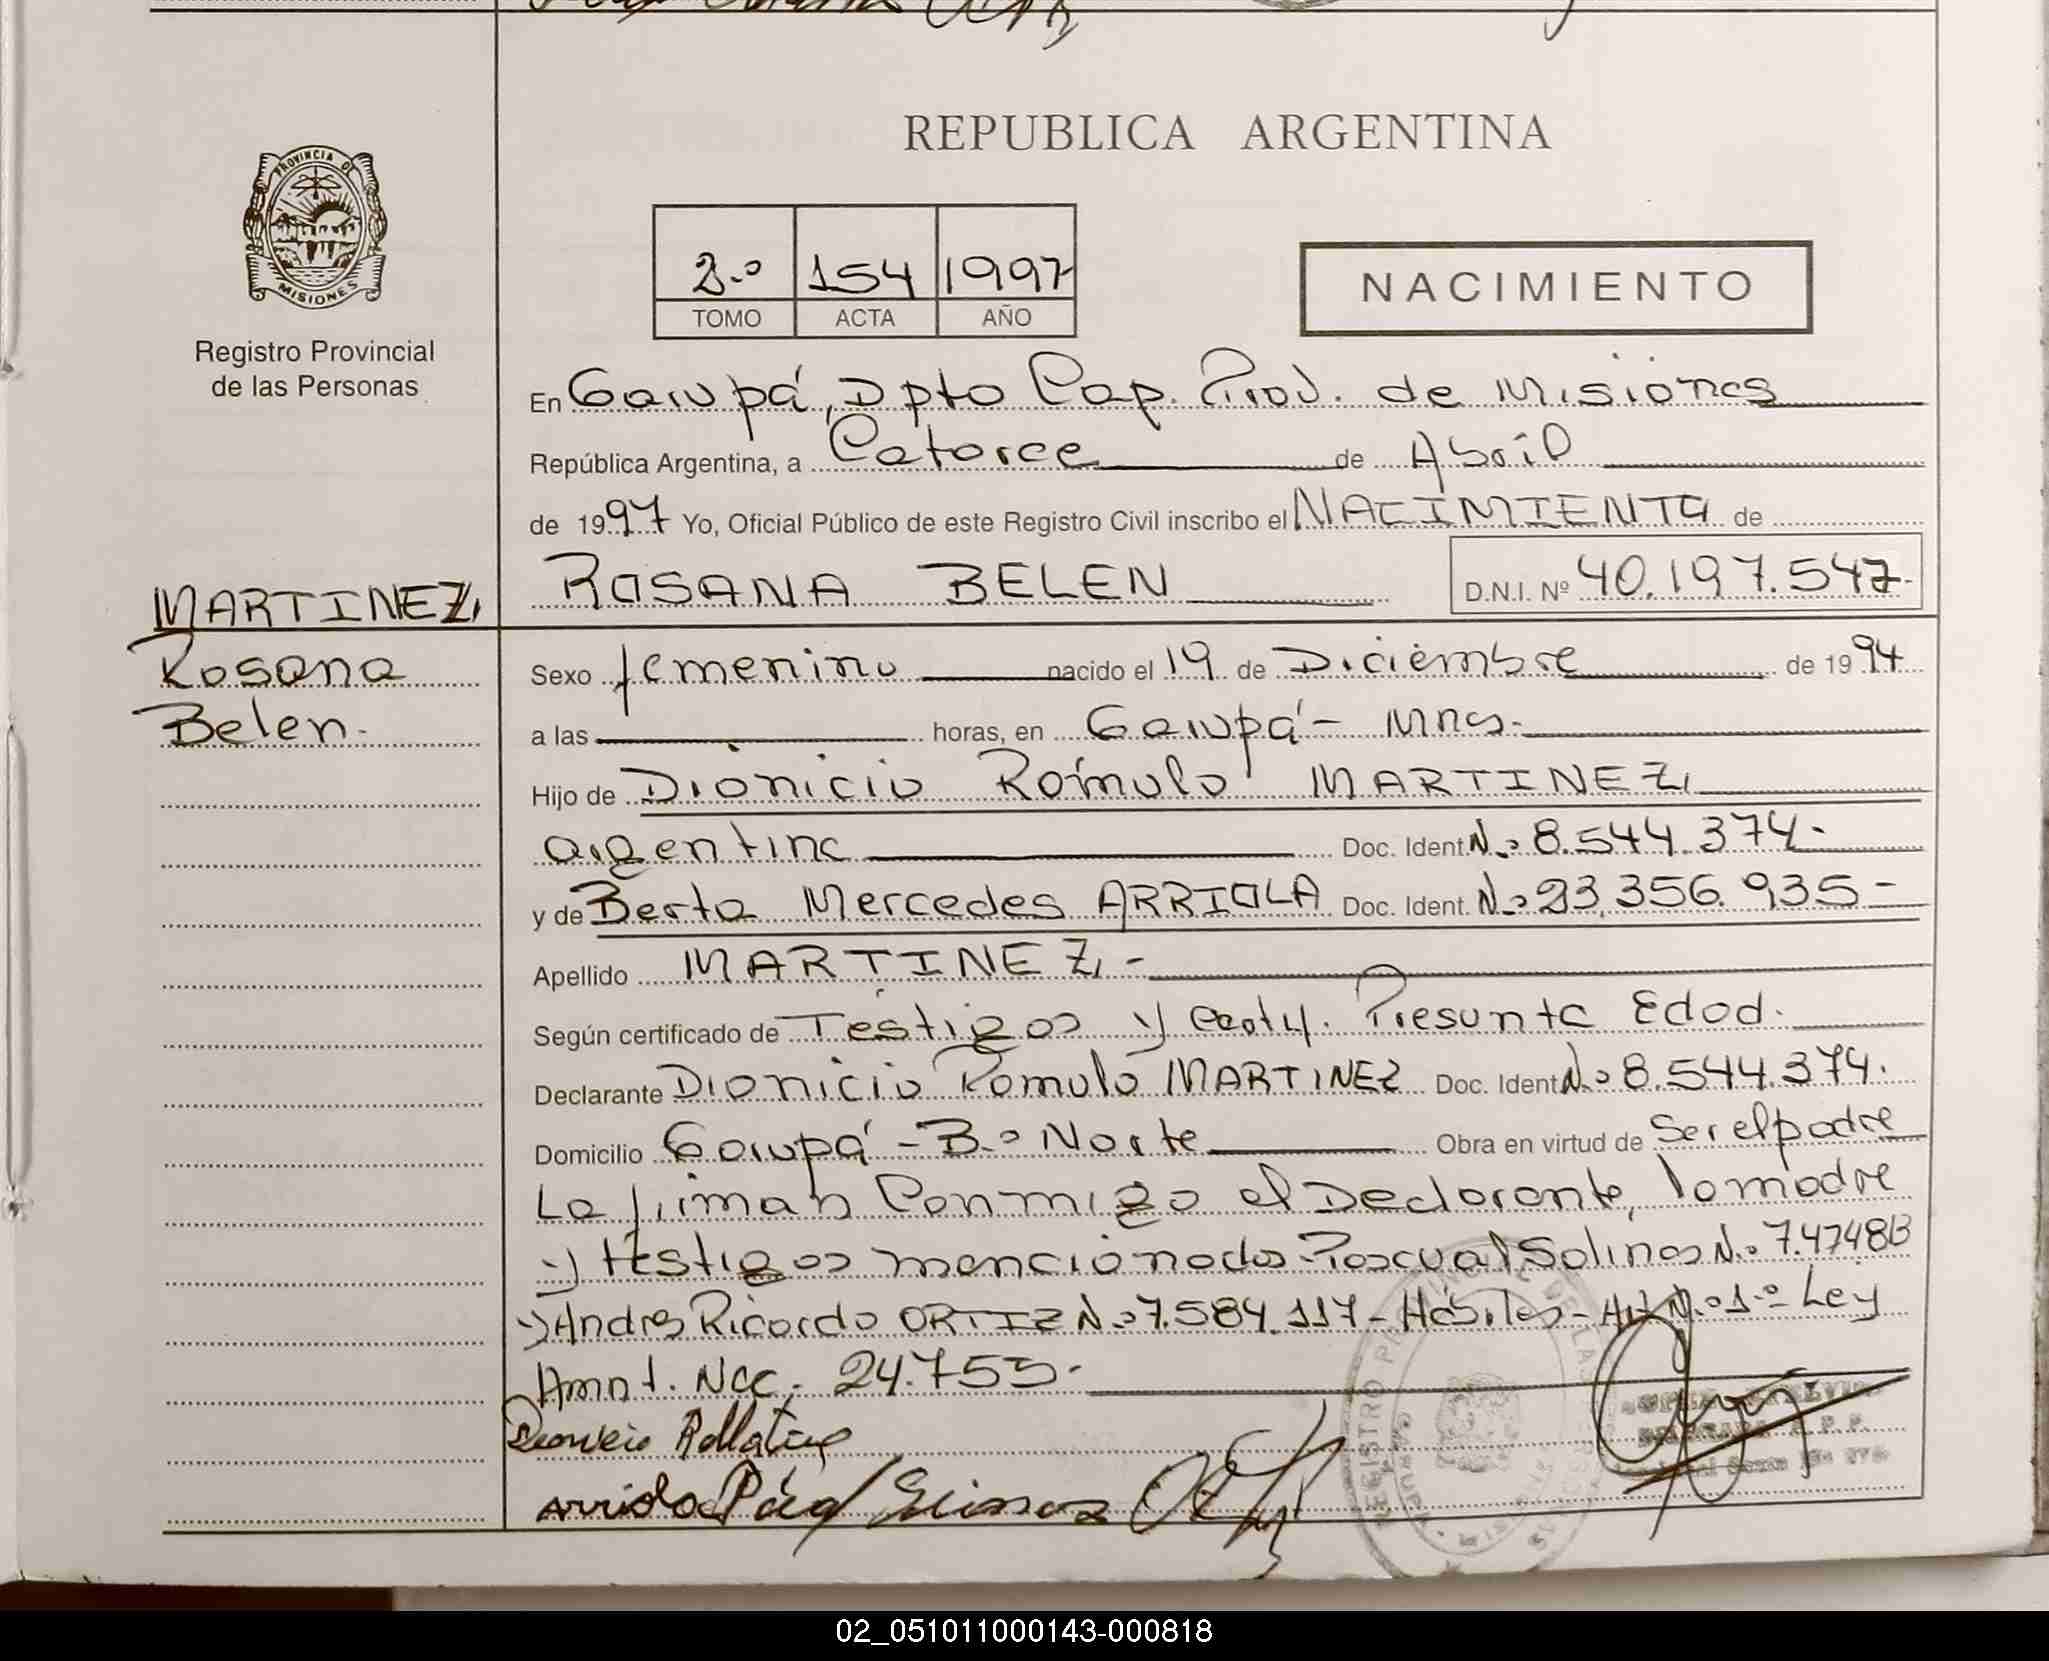 REPUBLICA ARGENTINA
PROVINCIA DE
MISIONES
Registro Provincial
de las Personas
2.º 154 1997
TOMO ACTA AÑO
NACIMIENTO
En Garupá, Dpto Cap. Prov. de Misiones
República Argentina, a Catorce de Abril
de 1997 Yo, Oficial Público de este Registro Civil inscribo el NACIMIENTO de
ROSANA BELEN D.N.I. Nº 40.197.547.-
MARTINEZ,
Rosana
Belen.-
Sexo femenino nacido el 19 de Diciembre de 1994
a las horas, en Garupá - Mnes.-
Hijo de Dionicio Rómulo MARTINEZ,
argentino Doc. Ident. N.º 8.544.374.-
y de Berta Mercedes ARRIOLA Doc. Ident. N.º 23.356.935 -
Apellido MARTINEZ, -
Según certificado de Testigos y certif. Presunta Edad.
Declarante Dionicio Romulo MARTINEZ Doc. Ident. N.º 8.544.374.
Domicilio Garupá - B.º Norte Obra en virtud de Ser el padre
La firman Conmigo el Declarante, la madre
y testigos mencionados Pascual Salinas N.º 7.474813
y Andres Ricardo ORTIZ N.º 7.584.117 - Hábiles - Art N.º 1.º Ley
Amnt. Nac. 24.755.-
REGISTRO
02_051011000143-000818